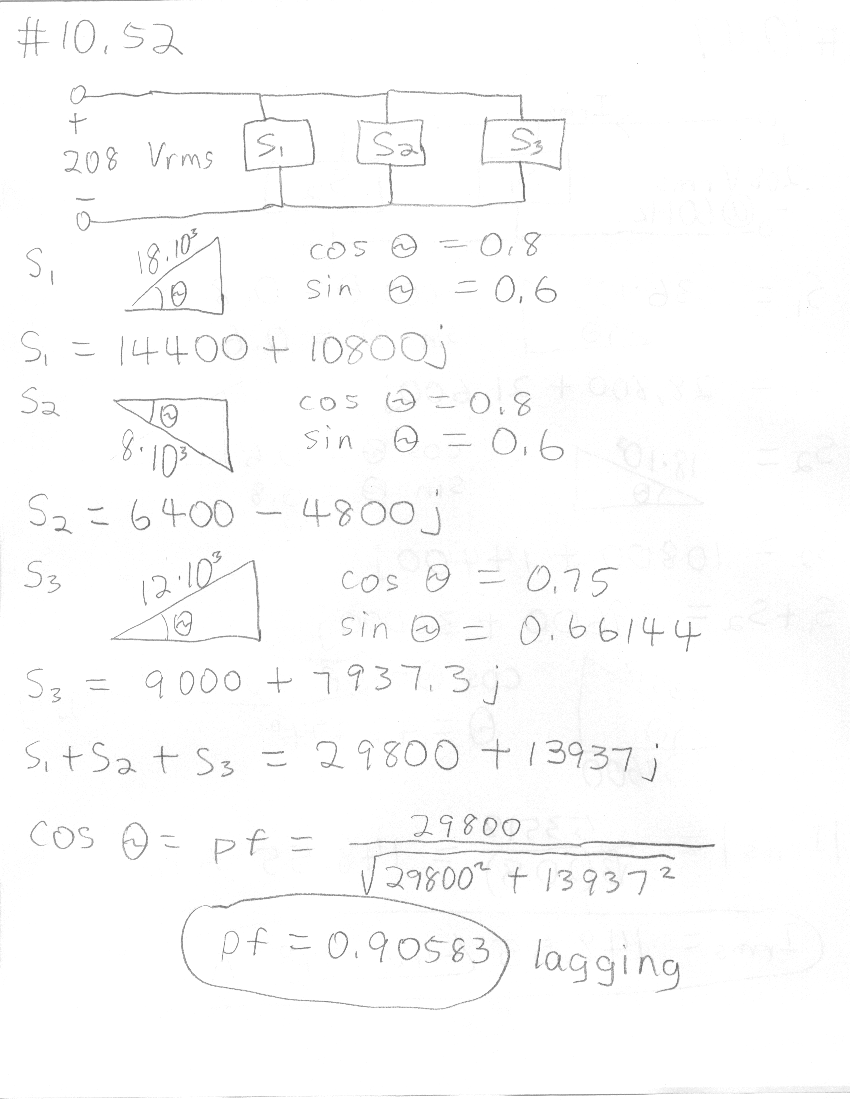 #10.52
+
208 Vrms
−
S₁ S₂ S₃
S₁ 18·10³ θ cos θ = 0.8
sin θ = 0.6
S₁ = 14400 + 10800j
S₂ θ 8·10³ cos θ = 0.8
sin θ = 0.6
S₂ = 6400 − 4800j
S₃ 12·10³ θ cos θ = 0.75
sin θ = 0.66144
S₃ = 9000 + 7937.3j
S₁ + S₂ + S₃ = 29800 + 13937j
cos θ = pf = 29800 / √(29800² + 13937²)
pf = 0.90583 lagging